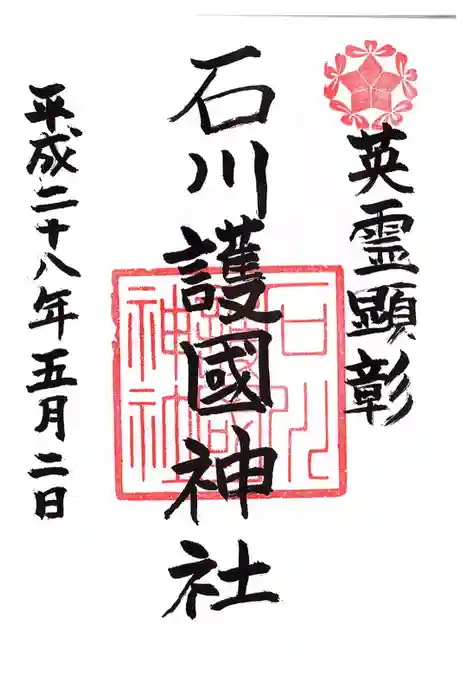 英霊顕彰
石川護國神社
石川護國神社
平成二十八年五月二日